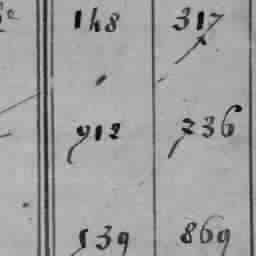 148 317
912 736
539 869